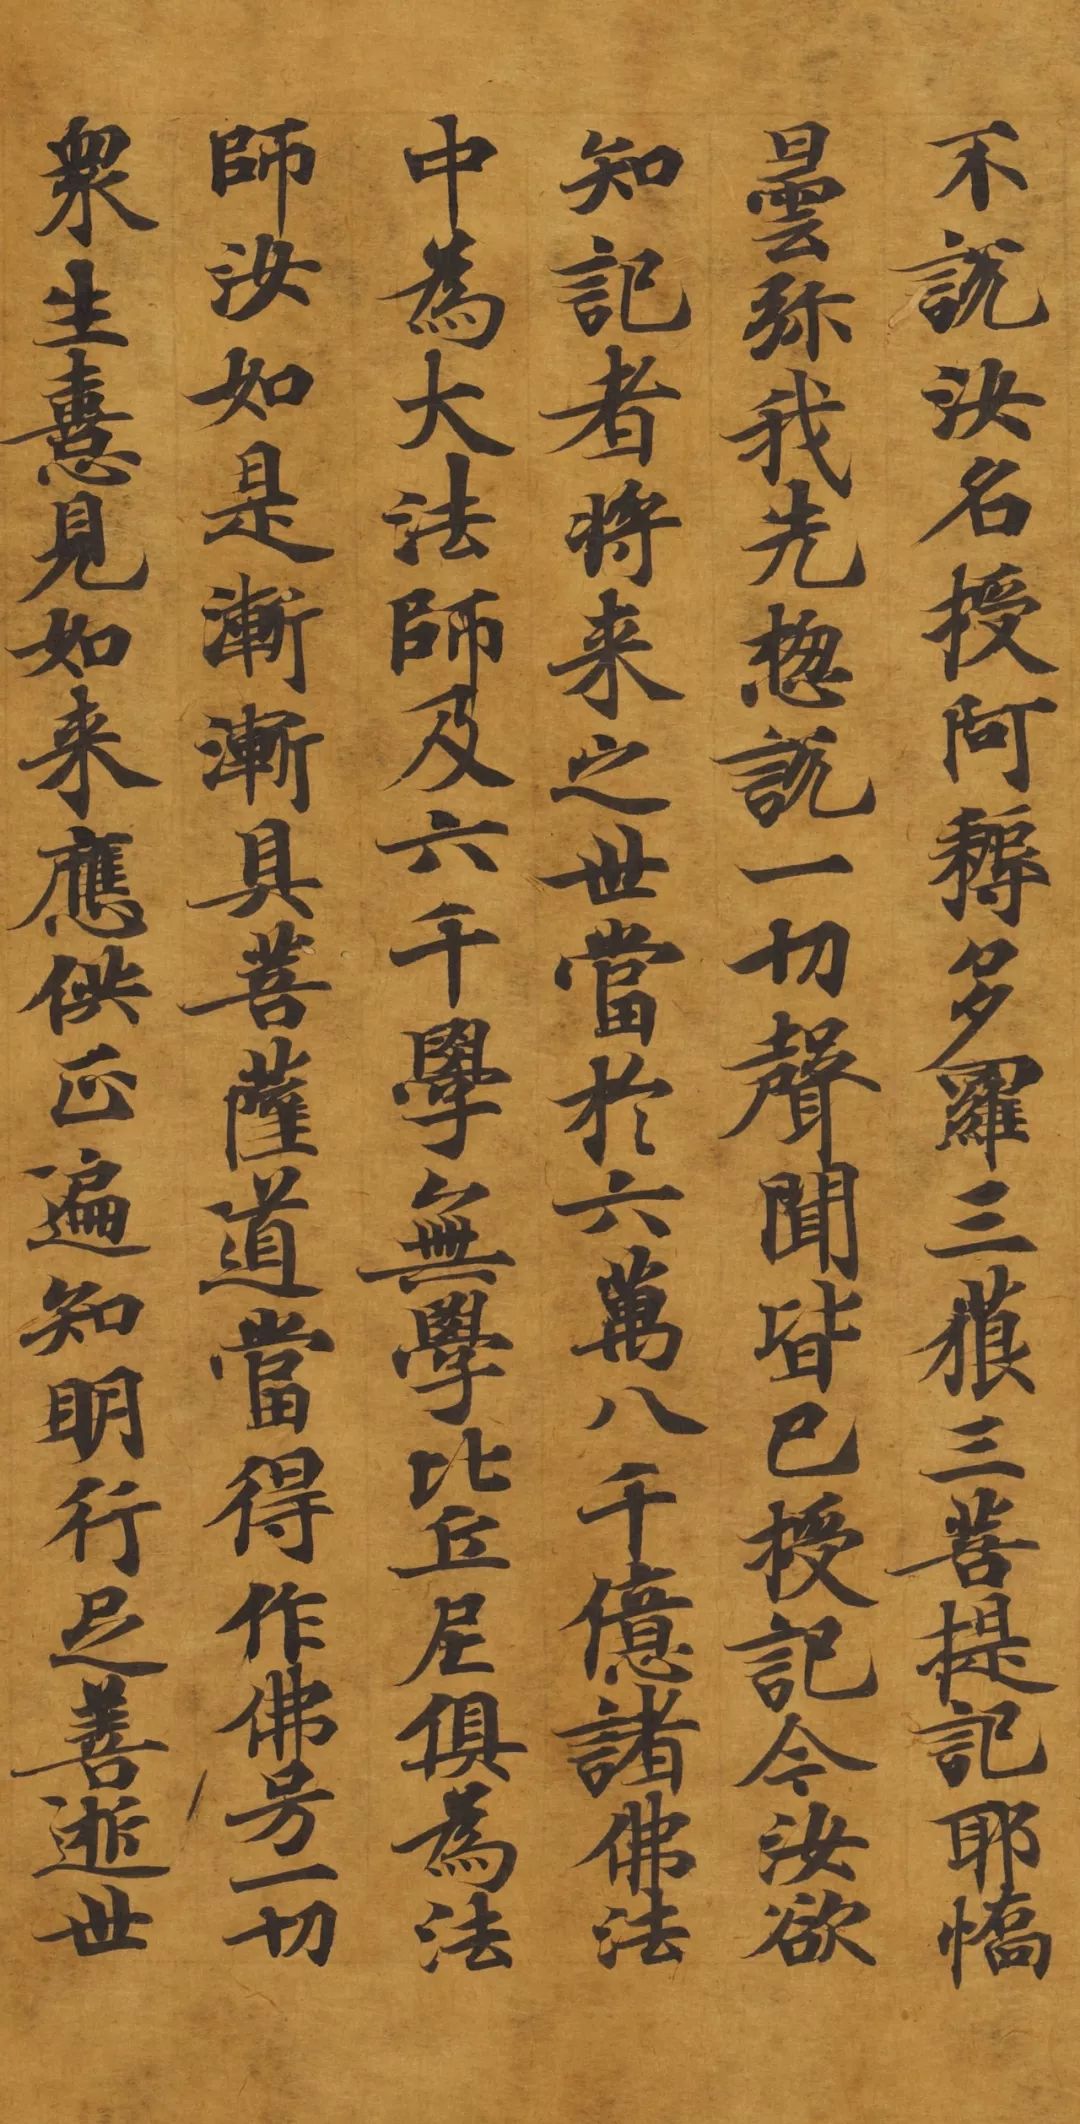 不說汝名授阿耨多羅三藐三菩提記耶憍
曇弥我先惣說一切聲聞皆已授記今汝欲
知記者將来之世當於六萬八千億諸佛法
中為大法師及六千學無學比丘尼俱為法
師汝如是漸漸具菩薩道當得作佛号一切
衆生憙見如来應供正遍知明行足善逝世